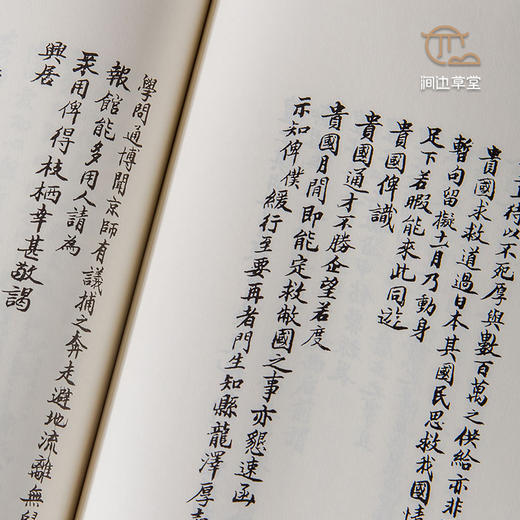 涧边草堂
待以不死厚與數百萬之供給亦非
貴國求救道過日本其國民思救我國情
暫向留擬十一月乃動身
足下若暇能來此同遊
貴國俾識
貴國通才不勝企望若度
貴國月間即能定救敝國之事亦懇速函
示知俾僕緩行至要再者門生知縣龍澤厚
學問通博聞京師有議捕之奔走避地流離無
報館能多用人請為
采用俾得枝栖幸甚敬謁
興居